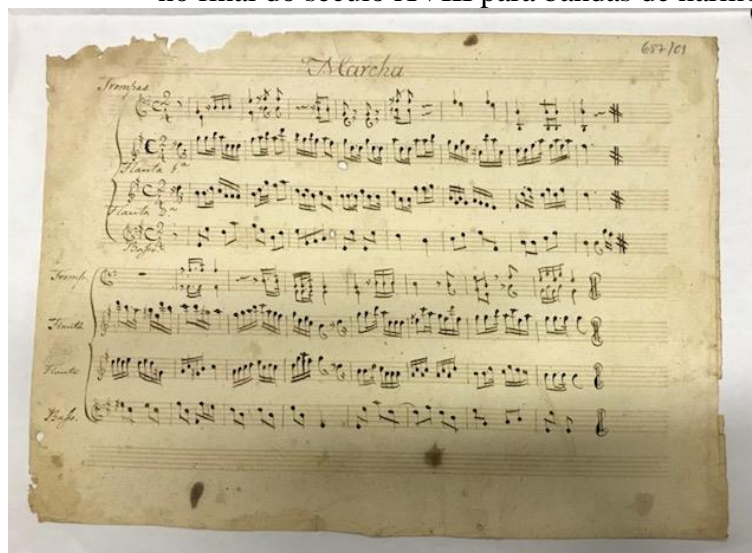 no final do século XVIII para bandas de harmo
687/01
Marcha
Trompas
Flauta 1ª
Flauta 2ª
Basso
Tromp.
Flauta
Flauta
Basso.